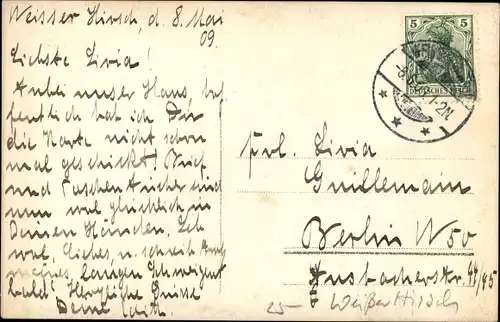 Weisser Hirsch, d. 8. Mai
09.
Liebste Livia!
Anbei unser Haus, hof
fentlich hat ich Dir
die Karte nicht schon
mal geschickt! Brief
und Taschentücher sind
nun wol glücklich in
Deinen Händen. Leb
wol, Liebes, u. schreib
meines, langen Schweigens
bald! Herzliche Grüsse
Deine Edith.
5 5
DEUTSCHES REICH
1-2N.
Frl. Livia
Guillemain
Berlin W50
Ansbacherstr. 44/45
25- Weißer Hirsch